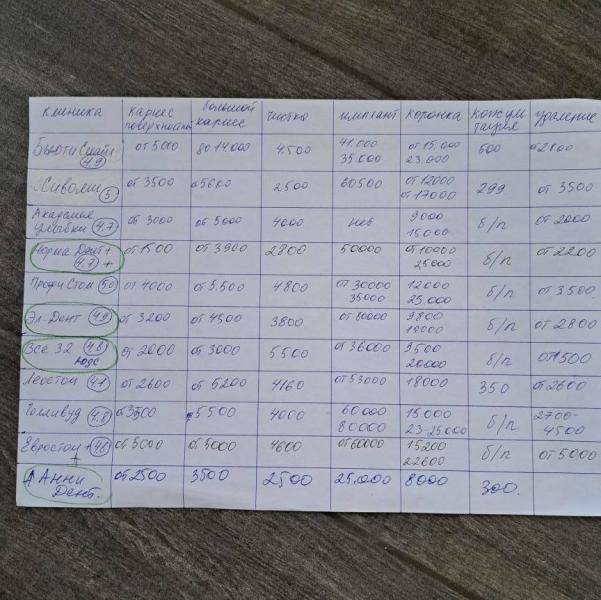 клиника кариес поверхностн большой кариес чистка имплант коронка консультация удаление
Бьюти Смайл 4.9 от 5000 до 14000 4.500 41.000 35.000 от 15.000 23.000 500 от 2800
5 от 3500 от 5600 2500 60500 от 12000 от 17000 299 от 3500
Академия улыбки 4.7 от 3000 от 5000 4000 нет 9000 15000 б/п от 2000
Норма Дент + 4.7 + от 1500 от 3900 2800 50000 от 10000 25000 б/п от 2200
Профи Стом 5.0 от 4000 от 5.500 4800 от 30000 35000 12000 25.000 б/п от 3500
Эл. Дент 4.9 от 3200 от 4500 3800 от 80000 9800 б/п от 2800
Все 32 4.8 от 2000 от 3000 5500 от 36000 9500 20000 б/п от 1500
Леостом 4.1 от 2600 от 5200 4160 от 53000 18000 350 от 2600
Голливуд 4.8 от 3500 5500 4000 60000 80000 15000 23-25000 б/п 2700-4500
Евростом + 4.6 от 5000 от 5000 4600 от 60000 15200 22600 б/п от 5000
Анни Дент. от 2500 3500 2500 25.000 8000 300.